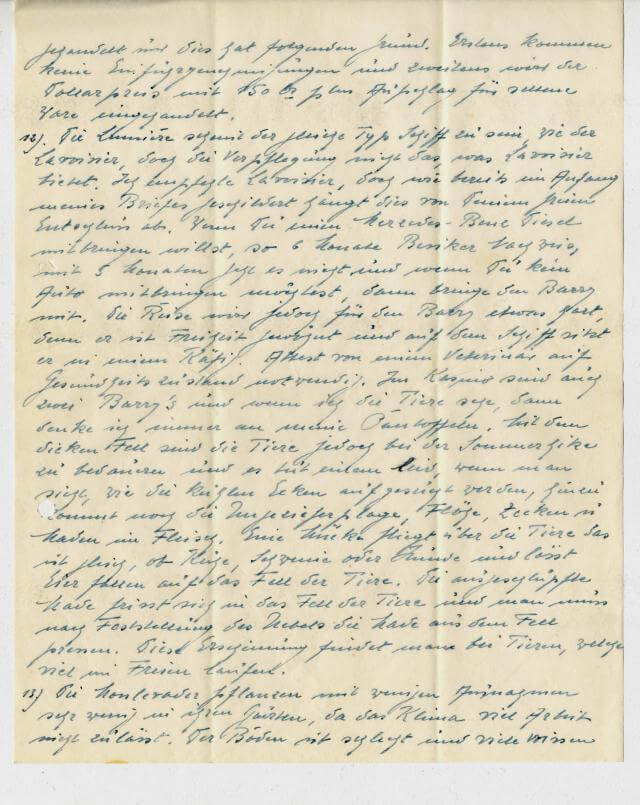 gehandelt und dies hat folgenden Grund. Erstens kommen
keine Einfuhrgenehmigungen und zweitens wird der
Dollarpreis mit 150 Cr plus Aufschlag für seltene
Ware eingehandelt.
12). Die Lumière scheint der gleiche Typ Schiff zu sein, wie der
Lavoisier, doch die Verpflegung nicht das, was Lavoisier
bietet. Ich empfehle Lavoisier, doch wie bereits im Anfang
meines Briefes geschildert hängt dies von Deinem freien
Entschluss ab. Wenn Du einen Mercedes-Benz Diesel
mitbringen willst, so 6 Monate Besitzer Nachweis,
mit 5 Monaten geht es nicht und wenn Du kein
Auto mitbringen möchtest, dann bringe den Barry
mit. Die Reise wird jedoch für den Barry etwas hart,
denn er ist Freiheit gewöhnt und auf dem Schiff sitzt
er in einem Käfig. Attest von einem Veterinär auf
Gesundheitszustand notwendig. Im Kasino sind auch
zwei Barry's und wenn ich die Tiere sehe, dann
denke ich immer an meine Pantoffeln. Mit dem
dicken Fell sind die Tiere jedoch bei der Sommerhitze
zu bedauern und es tut einem leid, wenn man
sieht, wie die kühlen Ecken aufgesucht werden, hinein
kommt noch die Ungezieferplage, Flöhe, Zecken u
Maden im Fleisch. Eine Mücke fliegt über die Tiere das
ist gleich, ob Kühe, Schweine oder Hunde und lässt
Eier fallen auf das Fell der Tiere. Die ausgeschlüpfte
Made frisst sich in das Fell der Tiere und man muss
nach Feststellung des Uebels die Made aus dem Fell
pressen. Diese Erscheinung findet man bei Tieren, welche
viel im Freien laufen.
13) Die Monlevader pflanzen mit wenigen Ausnahmen
sehr wenig in ihren Gärten, da das Klima viel Arbeit
nicht zulässt. Der Boden ist schlecht und viele wissen